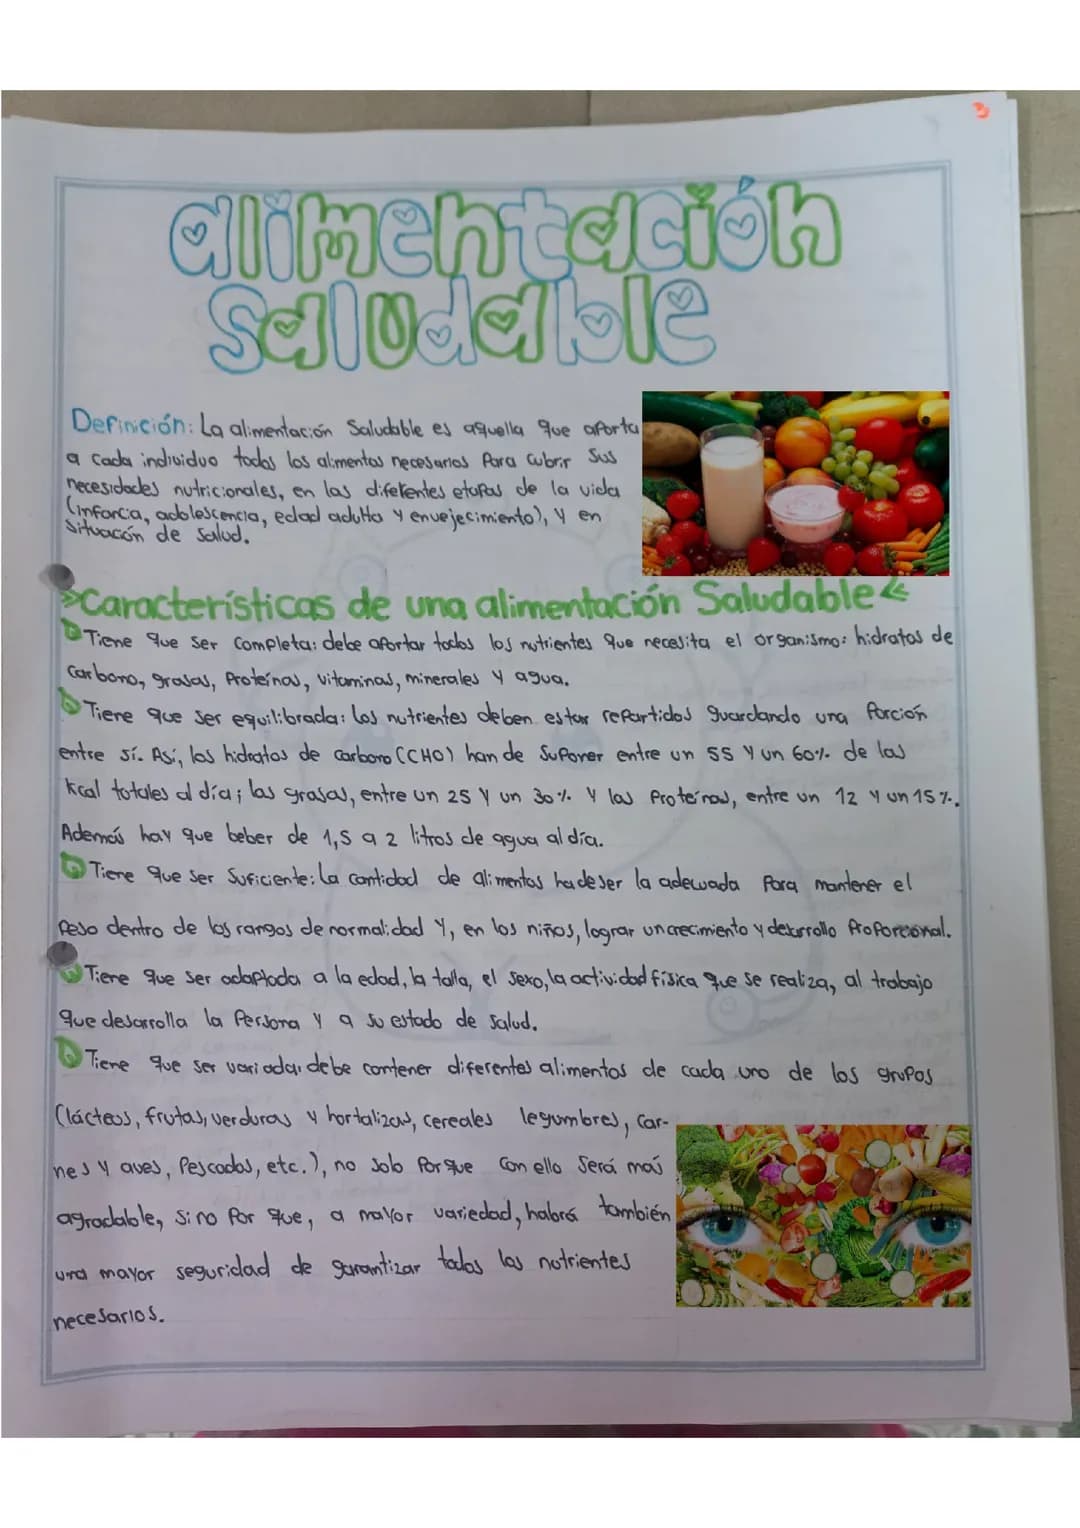 alimentación
saludable
Definición: La alimentación Saludable es aquella que aporta
a cada individuo todos los alimentos necesarios Para cubrir Sus
necesidades nutricionales, en las diferentes etapas de la vida
(infancia, adolescencia, edad adulta y envejecimiento), Y en
Situación de Salud.
»Características de una alimentación Saludable«
Tiene que ser Completa: debe aportar todos los nutrientes que necesita el organismo: hidratos de
Carbono, grasas, Proteínas, vitaminas, minerales Y agua.
Tiene que ser equilibrada: los nutrientes deben estar repartidos guardando una Porción
entre sí. Así, los hidratos de carbono (CHO) han de Suponer entre un 55 Y un 60% de las
Kcal totales al día; las grasas, entre un 25 Y un 30% Y las Proteínas, entre un 12 Y un 15%.
Además hay que beber de 1,5 a 2 litros de agua al día.
Tiene que ser Suficiente: La cantidad de alimentos ha de ser la adecuada Para mantener el
Peso dentro de los rangos de normalidad Y, en los niños, lograr un crecimiento y desarrollo Proporcional.
Tiene que ser adaptada a la edad, la talla, el sexo, la actividad física que se realiza, al trabajo
que desarrolla la Persona Y a su estado de salud.
Tiene que ser variada: debe contener diferentes alimentos de cada uno de los grupos
(lácteos, frutas, verduras y hortalizas, cereales legumbres, Car-
nes Y aves, Pescados, etc.), no solo Porque Con ello Será más
agradable, Sino Por que, a mayor variedad, habrá también
una mayor seguridad de garantizar todos los nutrientes
necesarios.